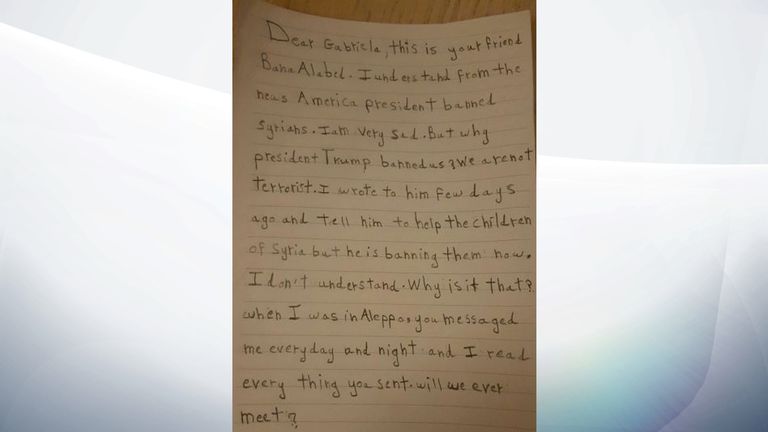 Dear Gabriela, this is your friend
Bana Alabed. I understand from the
news America president banned
Syrians. I am very sad. But why
president Trump banned us? We are not
terrorist. I wrote to him few days
ago and tell him to help the children
of Syria but he is banning them now.
I don't understand. Why is it that?
when I was in Aleppo, you messaged
me everyday and night and I read
every thing you sent. will we ever
meet?